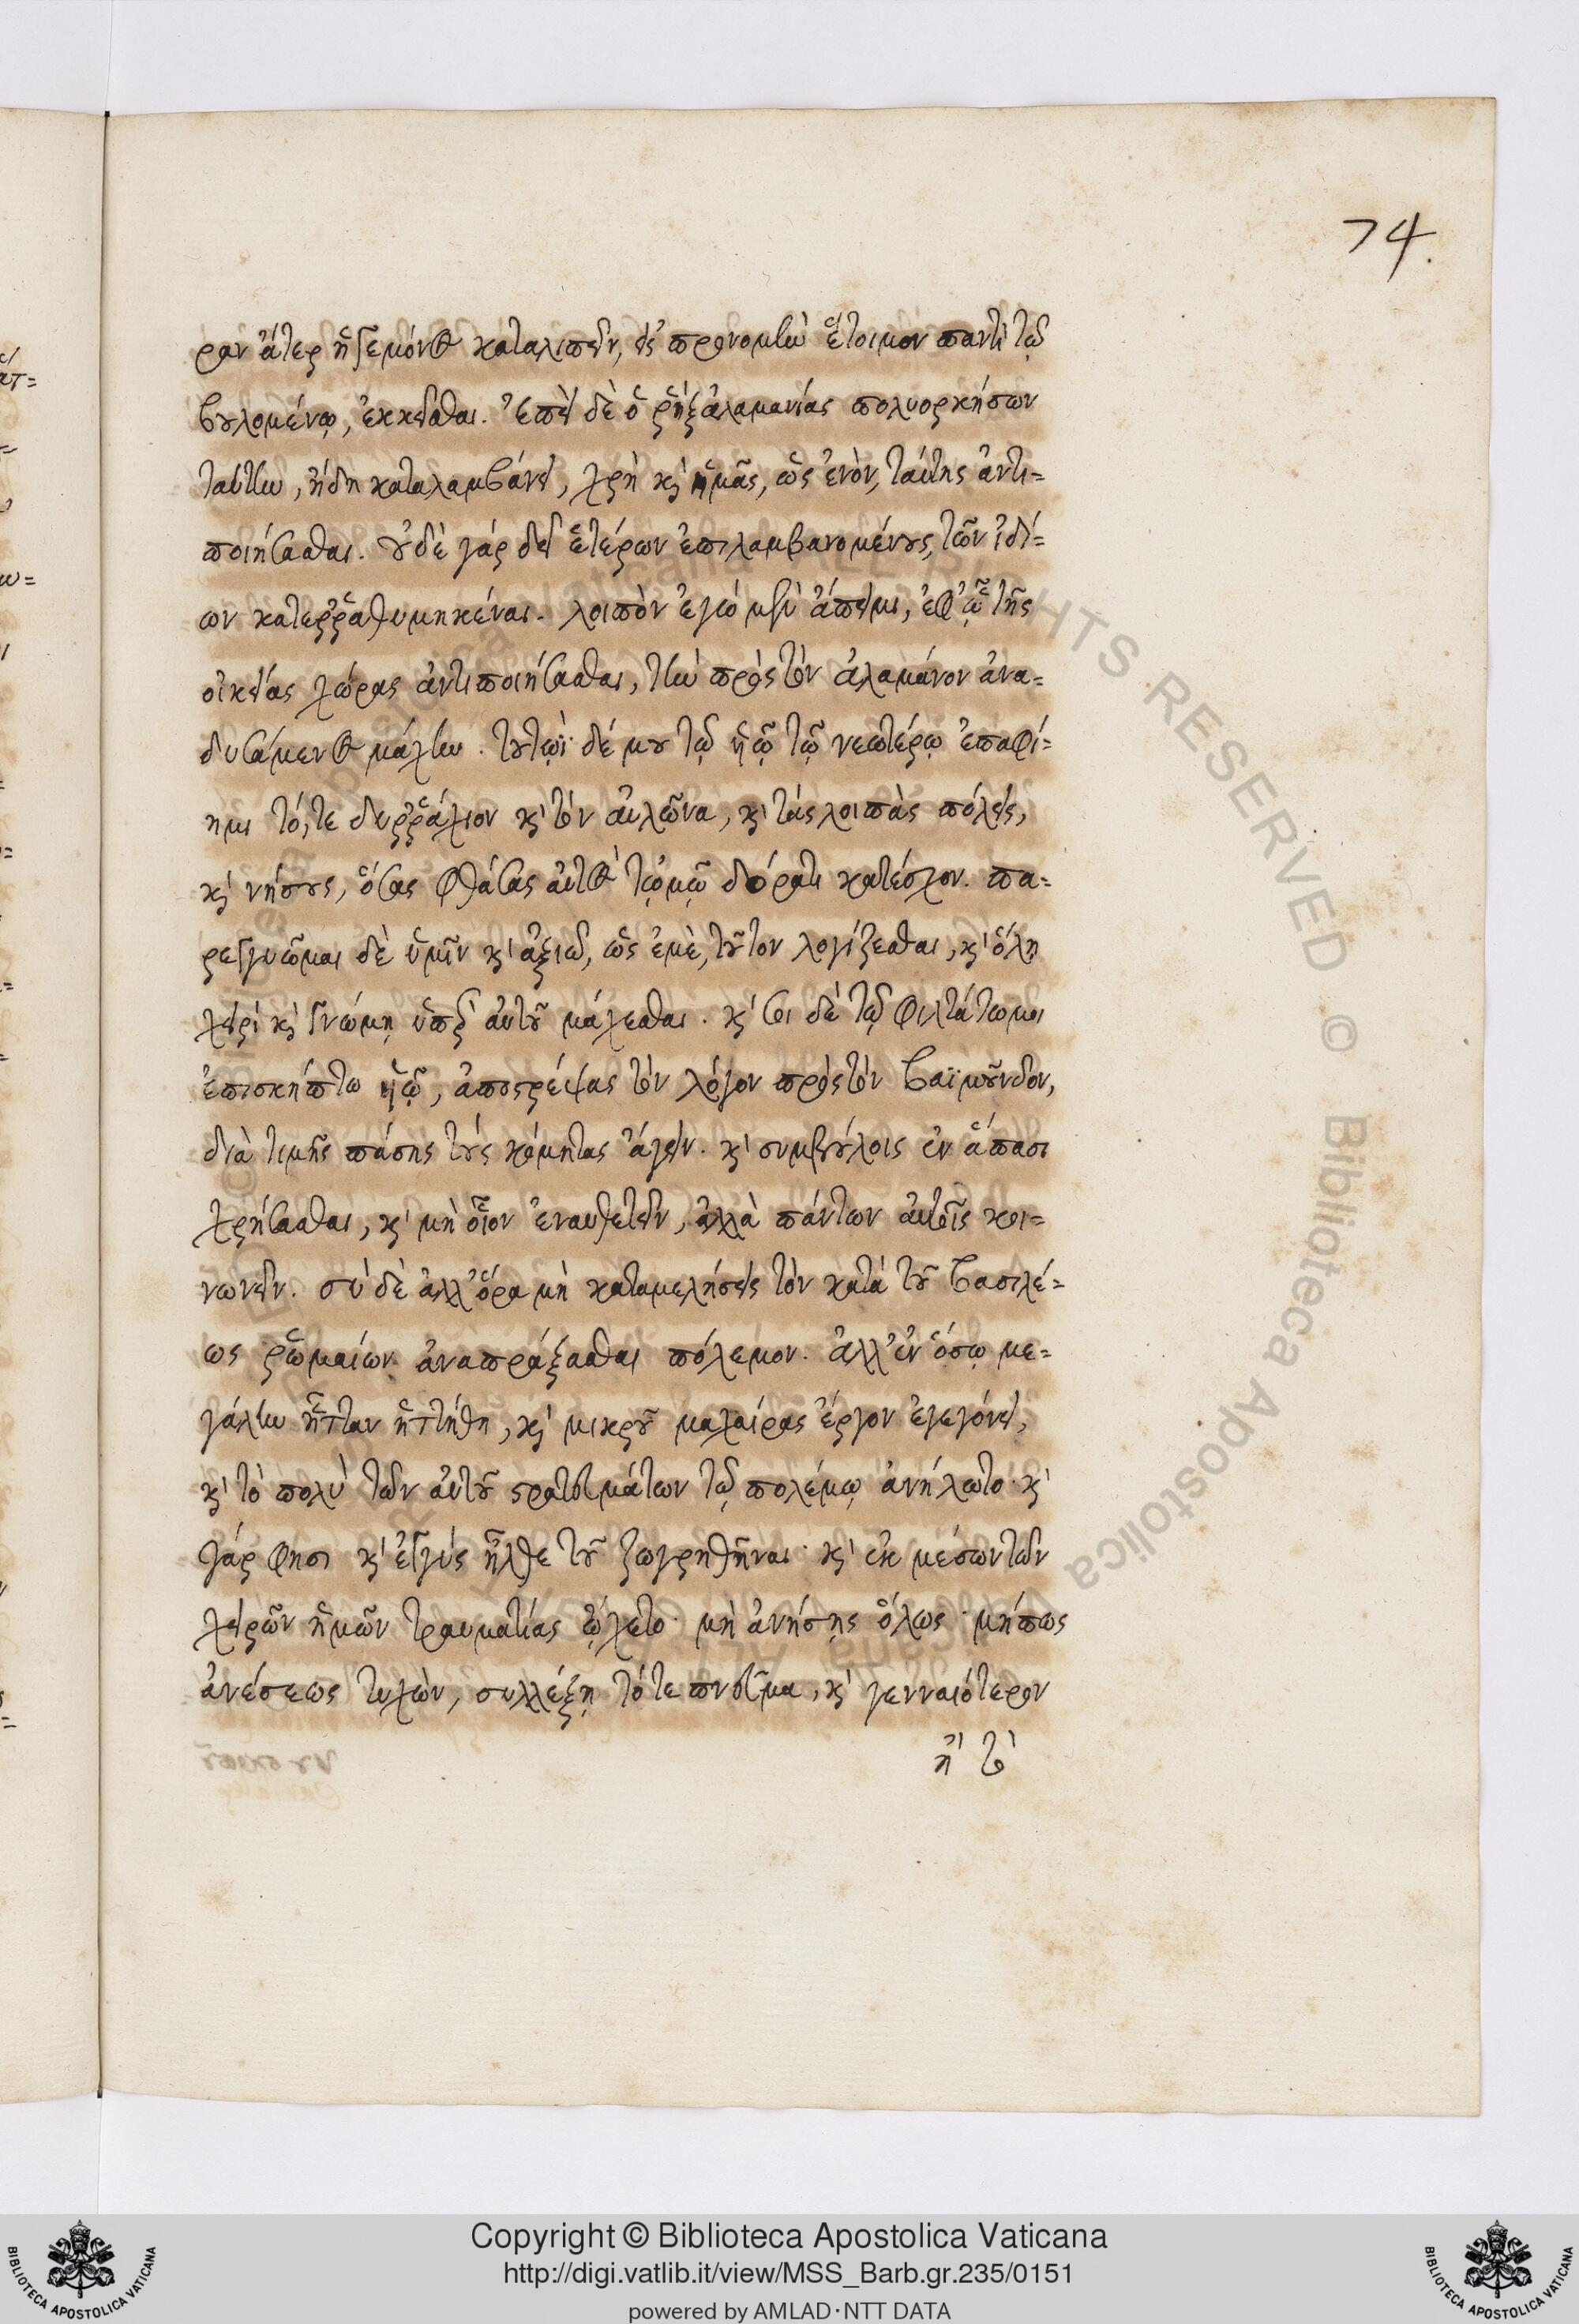 74.
ραν ἄτερ ἡγεμόνος καταλιπεῖν, εἰς προνομὴν ἕτοιμον παντὶ τῷ
βουλομένῳ, ἐκκεῖσθαι. Ἐπεὶ δὲ ὁ ῥὴξ ἀλαμανίας πολυορκήσων
ταύτην, ἤδη καταλαμβάνει, χρὴ καὶ ἡμᾶς, ὡς ἐνὸν, ταύτης ἀντι=
ποιήσασθαι. οὐδὲ γάρ δεῖ ἑτέρων ἐπιλαμβανομένους, τῶν ἰδί=
ων κατεῤῥαθυμηκέναι. λοιπὸν ἐγώ μὲν ἄπειμι, ἐφ' ᾧ τῆς
οἰκείας χώρας ἀντιποιήσασθαι, τὴν πρὸς τὸν ἀλαμάνον ἀνα=
δυσάμενος μάχην. τουτῳῒ δέ μου τῷ ἡῷ τῷ νεωτέρῳ ἐπαφί=
ημι τό, τε δυῤῥάχιον καὶ τὸν αὐλῶνα, καὶ τὰς λοιπὰς πόλεις,
καὶ νήσους, ὅσας φθάσας αὐτὸς τῷμῷ δόρατι κατέσχον. πα=
ρεγγυῶμαι δὲ ὑμῖν καὶ ἀξιῶ, ὡς ἐμὲ, τοῦτον λογίζεσθαι, καὶ ὅλῃ
χειρὶ καὶ γνώμῃ ὑπὲρ αὐτοῦ μάχεσθαι. καὶ σοι δὲ τῷ φιλτάτωμοι
ἐπισκήπτω ἡῷ, ἀποστρέψας τὸν λόγον πρὸς τὸν βαϊμοῦνδον,
διὰ τιμῆς πάσης τοὺς κόμητας ἄγειν. καὶ συμβούλοις ἐν ἅπασι
χρήσασθαι, καὶ μὴ οἷον ἐναυθετεῖν, ἀλλὰ πάντων αὐτοῖς κοι=
νωνεῖν. σύ δὲ ἀλλ' ὅρα μὴ καταμελήσεις τὸν κατὰ τοῦ βασιλέ=
ως ῥωμαίων ἀναπράξασθαι πόλεμον. ἀλλ' ἐν ὅσῳ με=
γάλην ἧτταν ἡττήθη, καὶ μικροῦ μαχαίρας ἔργον ἐγεγόνει,
καὶ τὸ πολὺ τῶν αὐτοῦ στρατευμάτων τῷ πολέμῳ ἀνήλωτο· καὶ
γάρ φησι καὶ ἐγγύς ἦλθε τοῦ ζωγρηθῆναι· καὶ ἐκ μέσων τῶν
χειρῶν ἡμῶν τραυματίας ᾤχετο· μὴ ἀνήσῃς ὅλως· μήπως
ἀνέσεως τυχών, συλλέξῃ τό τε πνεῦμα, καὶ γενναιότερον
ἢ τὸ
Copyright © Biblioteca Apostolica Vaticana
http://digi.vatlib.it/view/MSS_Barb.gr.235/0151
powered by AMLAD·NTT DATA